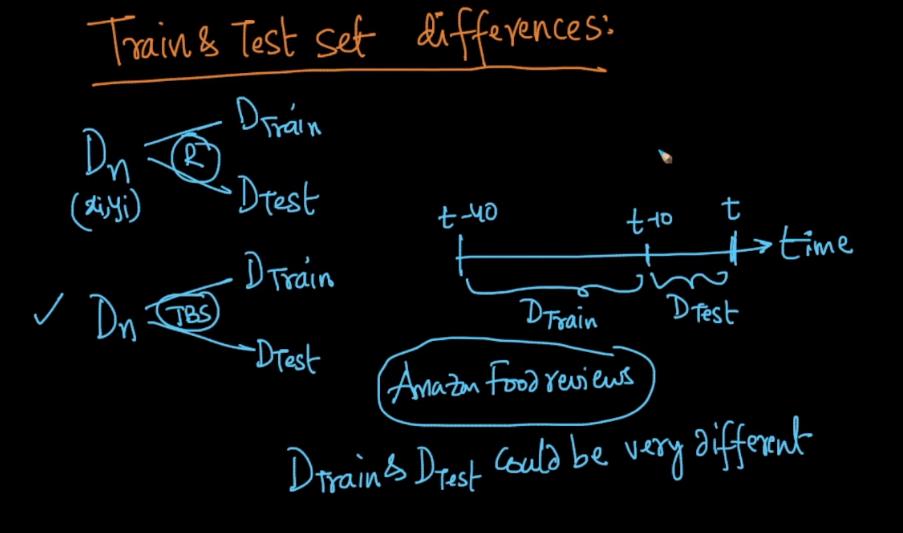 Train & Test set differences:
Dn
(xi,yi)
R
DTrain
DTest
✓ Dn
TBS
DTrain
DTest
t-40
t-10
t
time
DTrain
DTest
Amazon Food reviews
DTrain & DTest could be very different